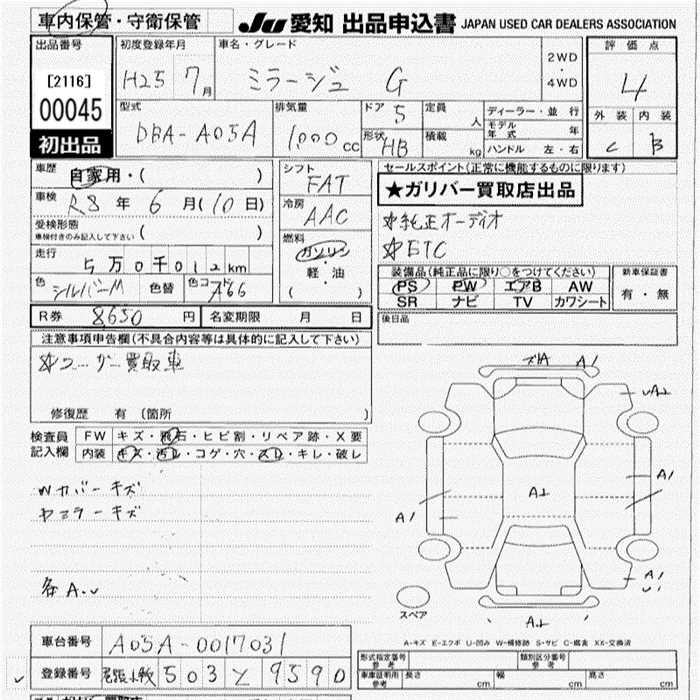 車内保管・守衛保管
JU 愛知 出品申込書 JAPAN USED CAR DEALERS ASSOCIATION
出品番号 初度登録年月 車名・グレード 評価点
[2116] H25 7月 ミラージュ G 2WD・4WD 4
00045 型式 排気量 ドア 5 定員 人 ディーラー・並行 外装 内装
初出品 DBA-A05A 1,000cc 形状 HB 積載 kg モデル年式 年 C B
ハンドル 左・右
車歴 自家用・( ) シフト FAT セールスポイント(正常に機能するものに限ります)
車検 R8年6月(10日) 冷房 AAC ★ガリバー買取店出品
受検形態 車検付きのみ記入して下さい ( ) 燃料 ☆純正オーディオ
走行 5万0千012km ガソリン ☆ETC
色 シルバーM 色替 色コード A66 軽・油 ( ) 装備品(純正品に限り○をつけてください) 新車保証書
PS PW エアB AW 有・無
SR ナビ TV カワシート
R券 8650円 名変期限 月 日 後日品
注意事項申告欄(不具合内容等は具体的に記入して下さい)
☆ユーザー買取車
修復歴 有 (箇所 )
検査員記入欄 FW キズ・飛石・ヒビ割・リペア跡・X要
内装 キズ・汚レ・コゲ・穴・スレ・キレ・破レ
Wカバーキズ
ドアミラーキズ
各A.U
A1
UA2
A1
A1
A1
スペア
A-キズ E-エクボ U-凹み W-補修跡 S-サビ C-腐食 XX-交換済
車台番号 A05A-0017031 形式指定番号 参考 類別区分番号 参考
登録番号 503 と 9590 車庫証明用 参考 長さ cm 幅 cm 高さ cm